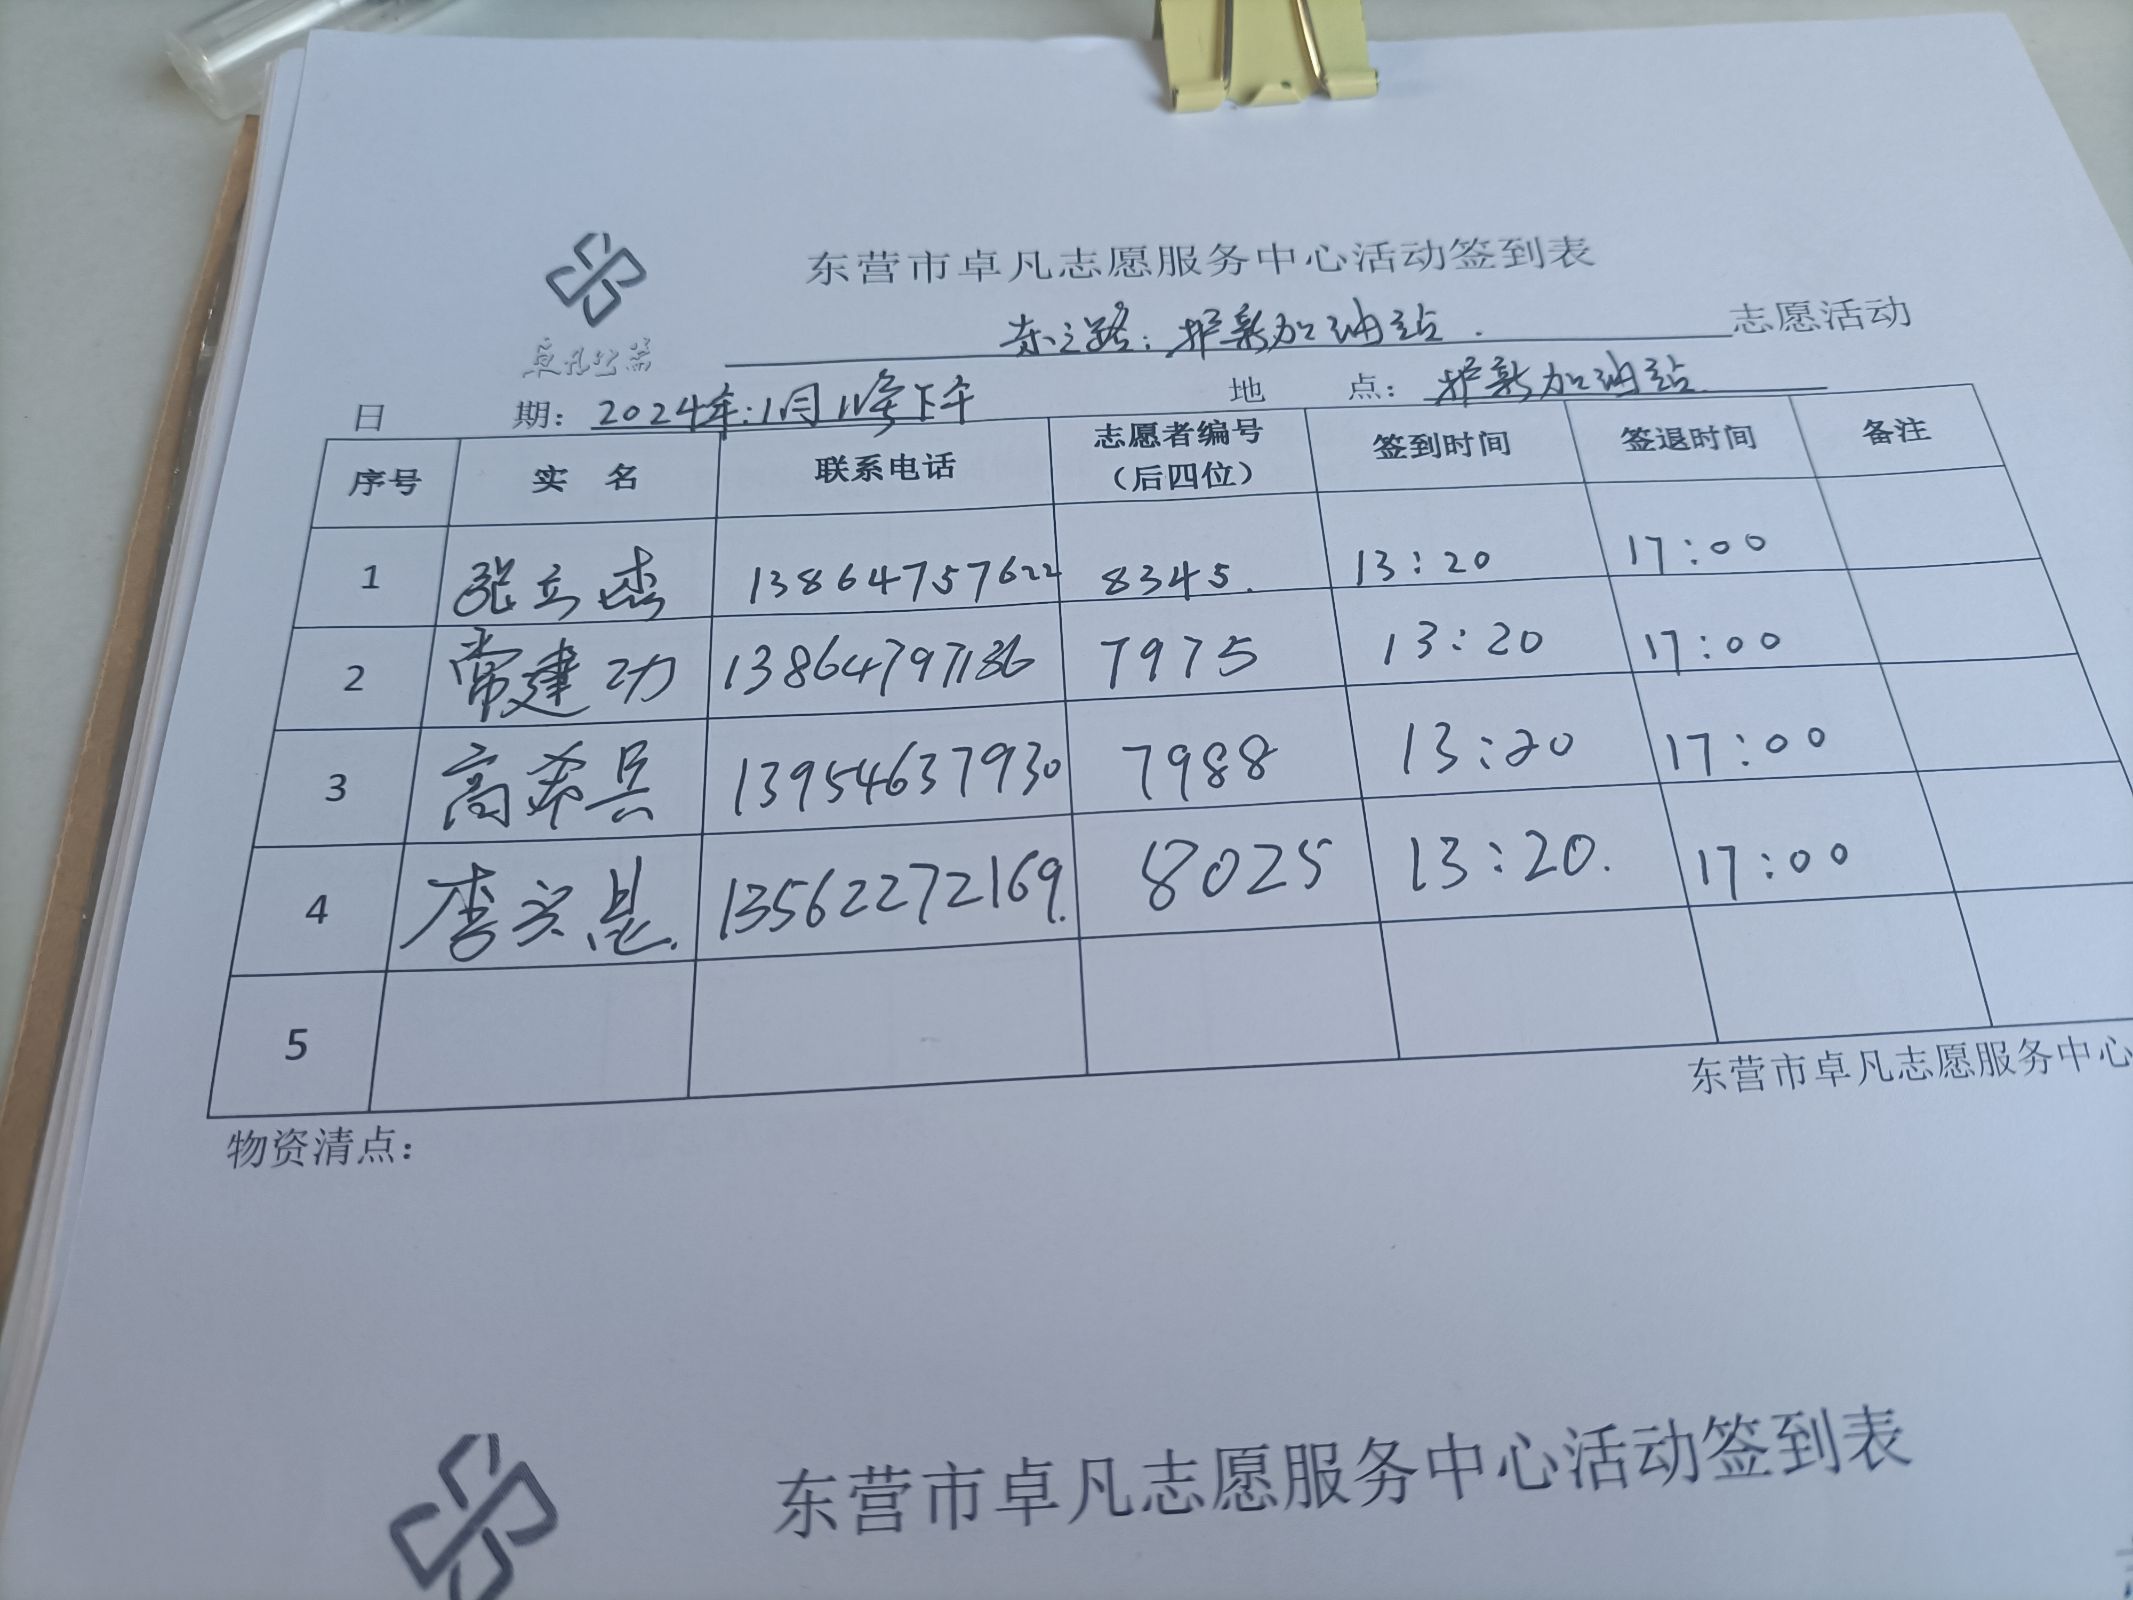 东营市卓凡志愿服务中心活动签到表
东之路:护新加油站. 志愿活动
卓凡公益
日 期: 2024年1月11号下午 地 点: 护新加油站
序号 实 名 联系电话 志愿者编号(后四位) 签到时间 签退时间 备注
1 张立杰 13864757622 8345. 13:20 17:00
2 常建功 13864797136 7975 13:20 17:00
3 高希兵 13954637930 7988 13:20 17:00
4 李 13562272169. 8025 13:20. 17:00
5
东营市卓凡志愿服务中心
物资清点:
东营市卓凡志愿服务中心活动签到表